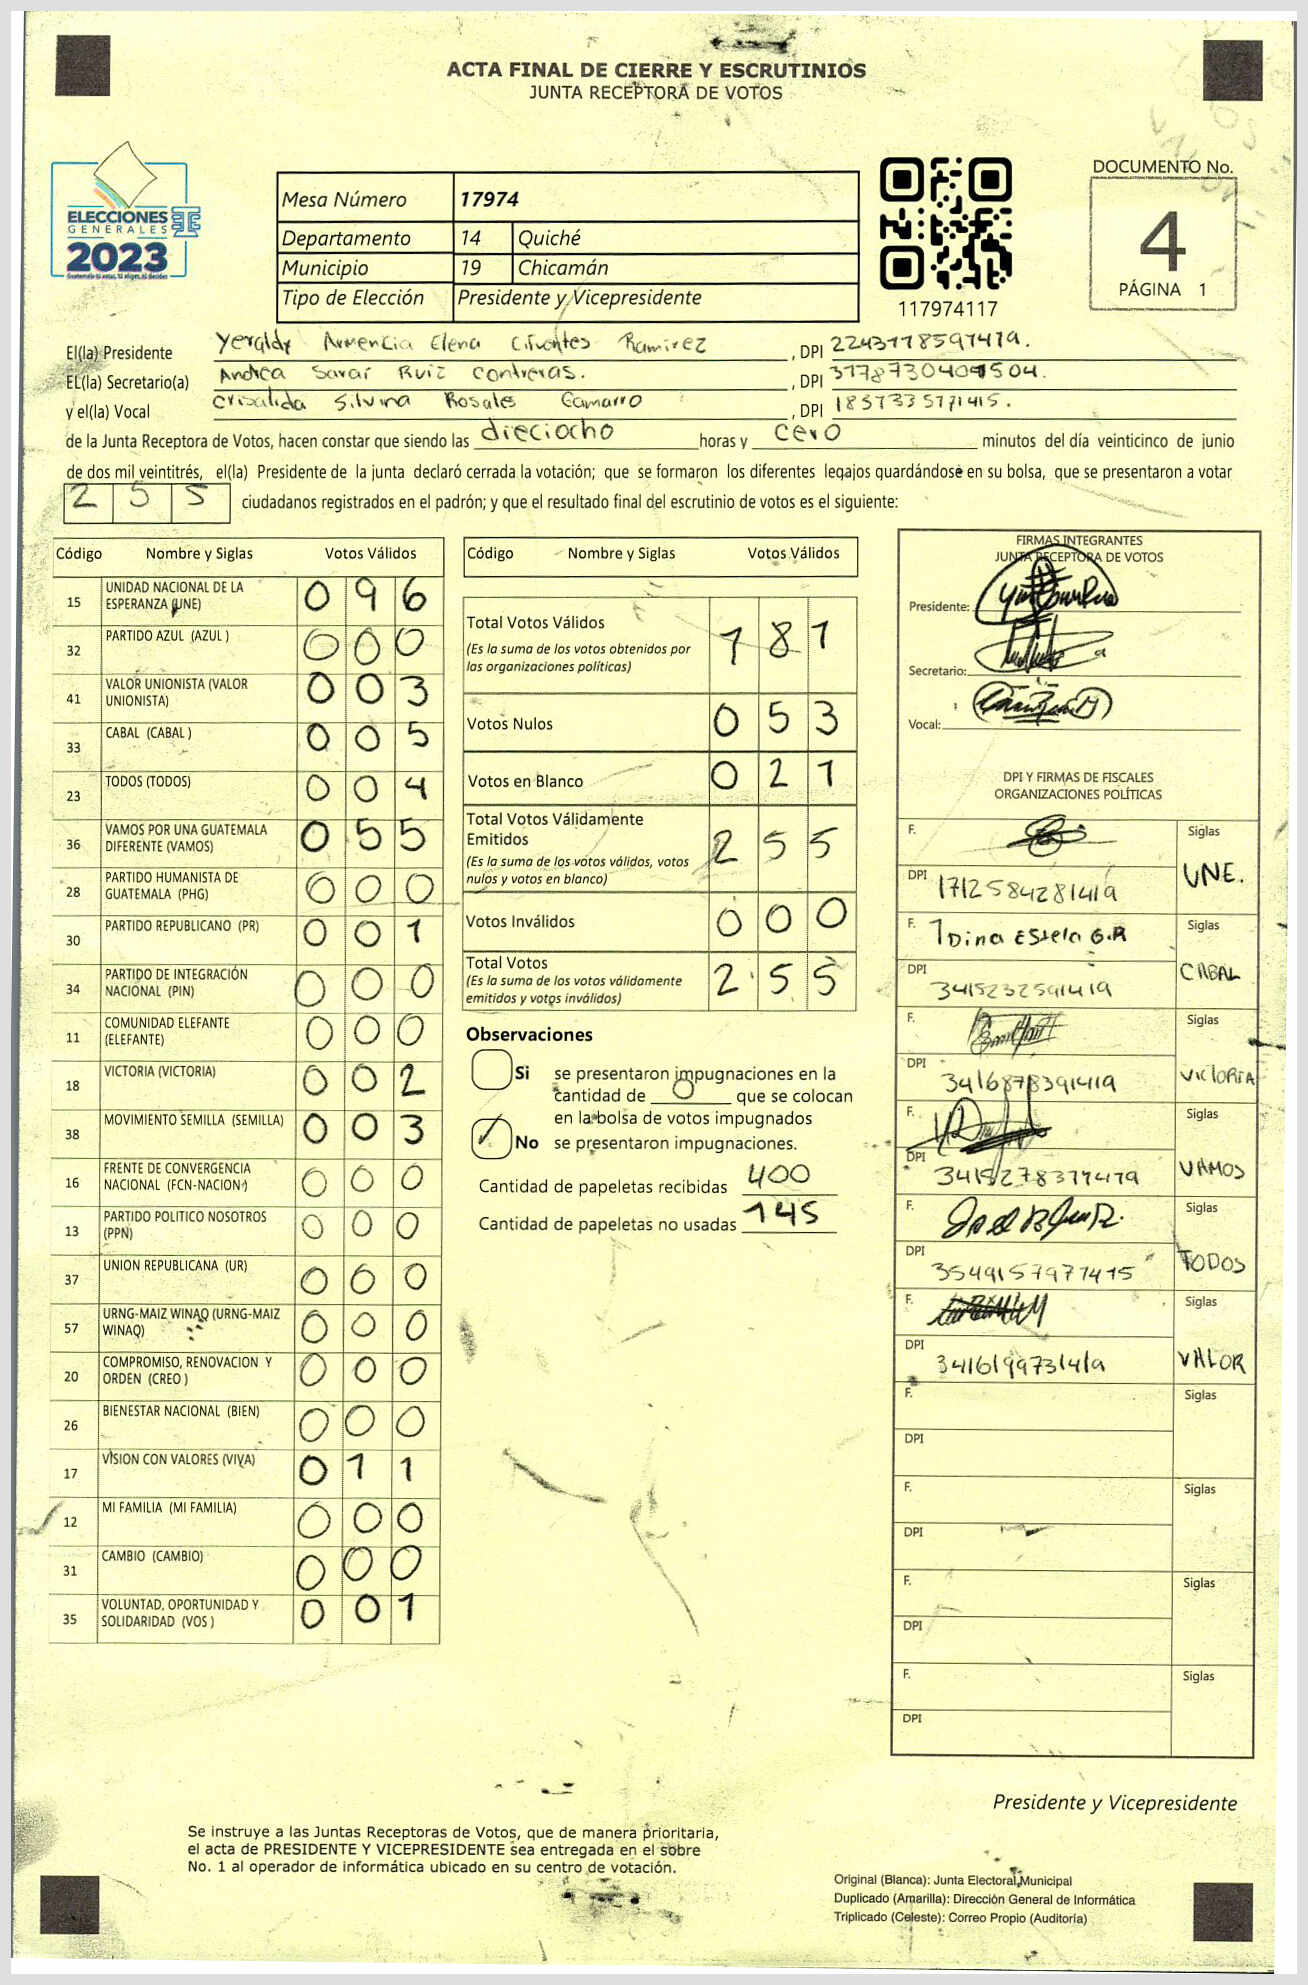 ACTA FINAL DE CIERRE Y ESCRUTINIOS
JUNTA RECEPTORA DE VOTOS
ELECCIONES
GENERALES
2023
Mesa Número 17974
Departamento 14 Quiché
Municipio 19 Chicamán
Tipo de Elección Presidente y Vicepresidente
117974117
DOCUMENTO No.
4
PÁGINA 1
El(la) Presidente Elena Cifuentes Ramirez , DPI
EL(la) Secretario(a) Andrea Saraí Ruiz Contreras. , DPI
y el(la) Vocal Crisalida Silvina Rosales Camarro , DPI
de la Junta Receptora de Votos, hacen constar que siendo las dieciocho horas y cero minutos del día veinticinco de junio
de dos mil veintitrés, el(la) Presidente de la junta declaró cerrada la votación; que se formaron los diferentes legajos guardándose en su bolsa, que se presentaron a votar
255 ciudadanos registrados en el padrón; y que el resultado final del escrutinio de votos es el siguiente:
Código Nombre y Siglas Votos Válidos
15 UNIDAD NACIONAL DE LA ESPERANZA (UNE) 096
32 PARTIDO AZUL (AZUL ) 000
41 VALOR UNIONISTA (VALOR UNIONISTA) 003
33 CABAL (CABAL ) 005
23 TODOS (TODOS) 004
36 VAMOS POR UNA GUATEMALA DIFERENTE (VAMOS) 055
28 PARTIDO HUMANISTA DE GUATEMALA (PHG) 000
30 PARTIDO REPUBLICANO (PR) 001
34 PARTIDO DE INTEGRACIÓN NACIONAL (PIN) 000
11 COMUNIDAD ELEFANTE (ELEFANTE) 000
18 VICTORIA (VICTORIA) 002
38 MOVIMIENTO SEMILLA (SEMILLA) 003
16 FRENTE DE CONVERGENCIA NACIONAL (FCN-NACION) 000
13 PARTIDO POLITICO NOSOTROS (PPN) 000
37 UNION REPUBLICANA (UR) 000
57 URNG-MAIZ WINAQ (URNG-MAIZ WINAQ) 000
20 COMPROMISO, RENOVACION Y ORDEN (CREO ) 000
26 BIENESTAR NACIONAL (BIEN) 000
17 VISION CON VALORES (VIVA) 011
12 MI FAMILIA (MI FAMILIA) 000
31 CAMBIO (CAMBIO) 000
35 VOLUNTAD, OPORTUNIDAD Y SOLIDARIDAD (VOS ) 001
Código Nombre y Siglas Votos Válidos
Total Votos Válidos 181
(Es la suma de los votos obtenidos por
las organizaciones políticas)
Votos Nulos 053
Votos en Blanco 021
Total Votos Válidamente
Emitidos 255
(Es la suma de los votos válidos, votos
nulos y votos en blanco)
Votos Inválidos 000
Total Votos 255
(Es la suma de los votos válidamente
emitidos y votos inválidos)
Observaciones
Si se presentaron impugnaciones en la
cantidad de 0 que se colocan
en la bolsa de votos impugnados
No se presentaron impugnaciones.
Cantidad de papeletas recibidas 400
Cantidad de papeletas no usadas 145
FIRMAS INTEGRANTES
JUNTA RECEPTORA DE VOTOS
Presidente:
Secretario:
Vocal:
DPI Y FIRMAS DE FISCALES
ORGANIZACIONES POLÍTICAS
F. Siglas
DPI 1712584281419 UNE.
F. Dina Estela G.R Siglas
DPI 3415232591419 CABAL
F. Siglas
DPI 3416878391419 VICTORIA
F. Siglas
DPI VAMOS
F. Siglas
DPI TODOS
F. Siglas
DPI 3416199731419 VALOR
F. Siglas
DPI
F. Siglas
DPI
F. Siglas
DPI
F. Siglas
DPI
Presidente y Vicepresidente
Se instruye a las Juntas Receptoras de Votos, que de manera prioritaria,
el acta de PRESIDENTE Y VICEPRESIDENTE sea entregada en el sobre
No. 1 al operador de informática ubicado en su centro de votación.
Original (Blanca): Junta Electoral Municipal
Duplicado (Amarilla): Dirección General de Informática
Triplicado (Celeste): Correo Propio (Auditoría)